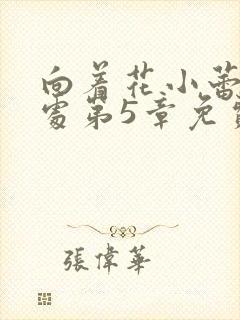 向着花小蕾
处第5章免
張偉華